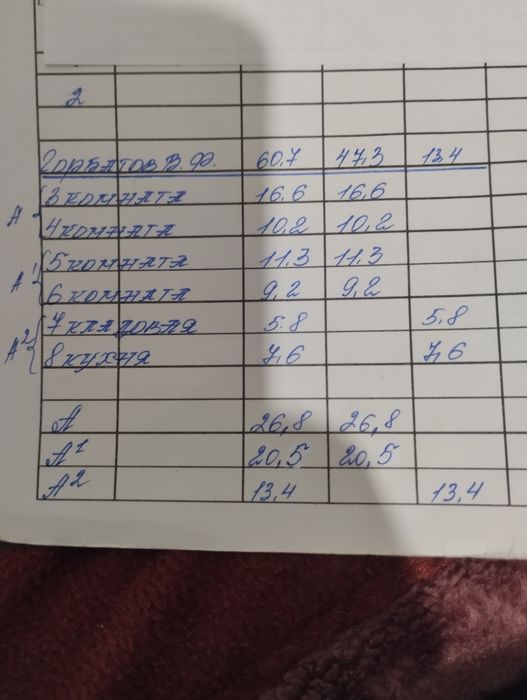 2
Горбатов В.Ф. 60.7 47,3 13,4
А { 3 комната 16,6 16,6
4 комната 10,2 10,2
А¹ { 5 комната 11,3 11,3
6 комната 9,2 9,2
А² { 7 кладовая 5.8 5.8
8 кухня 7,6 7,6
А 26,8 26,8
А¹ 20,5 20,5
А² 13,4 13,4